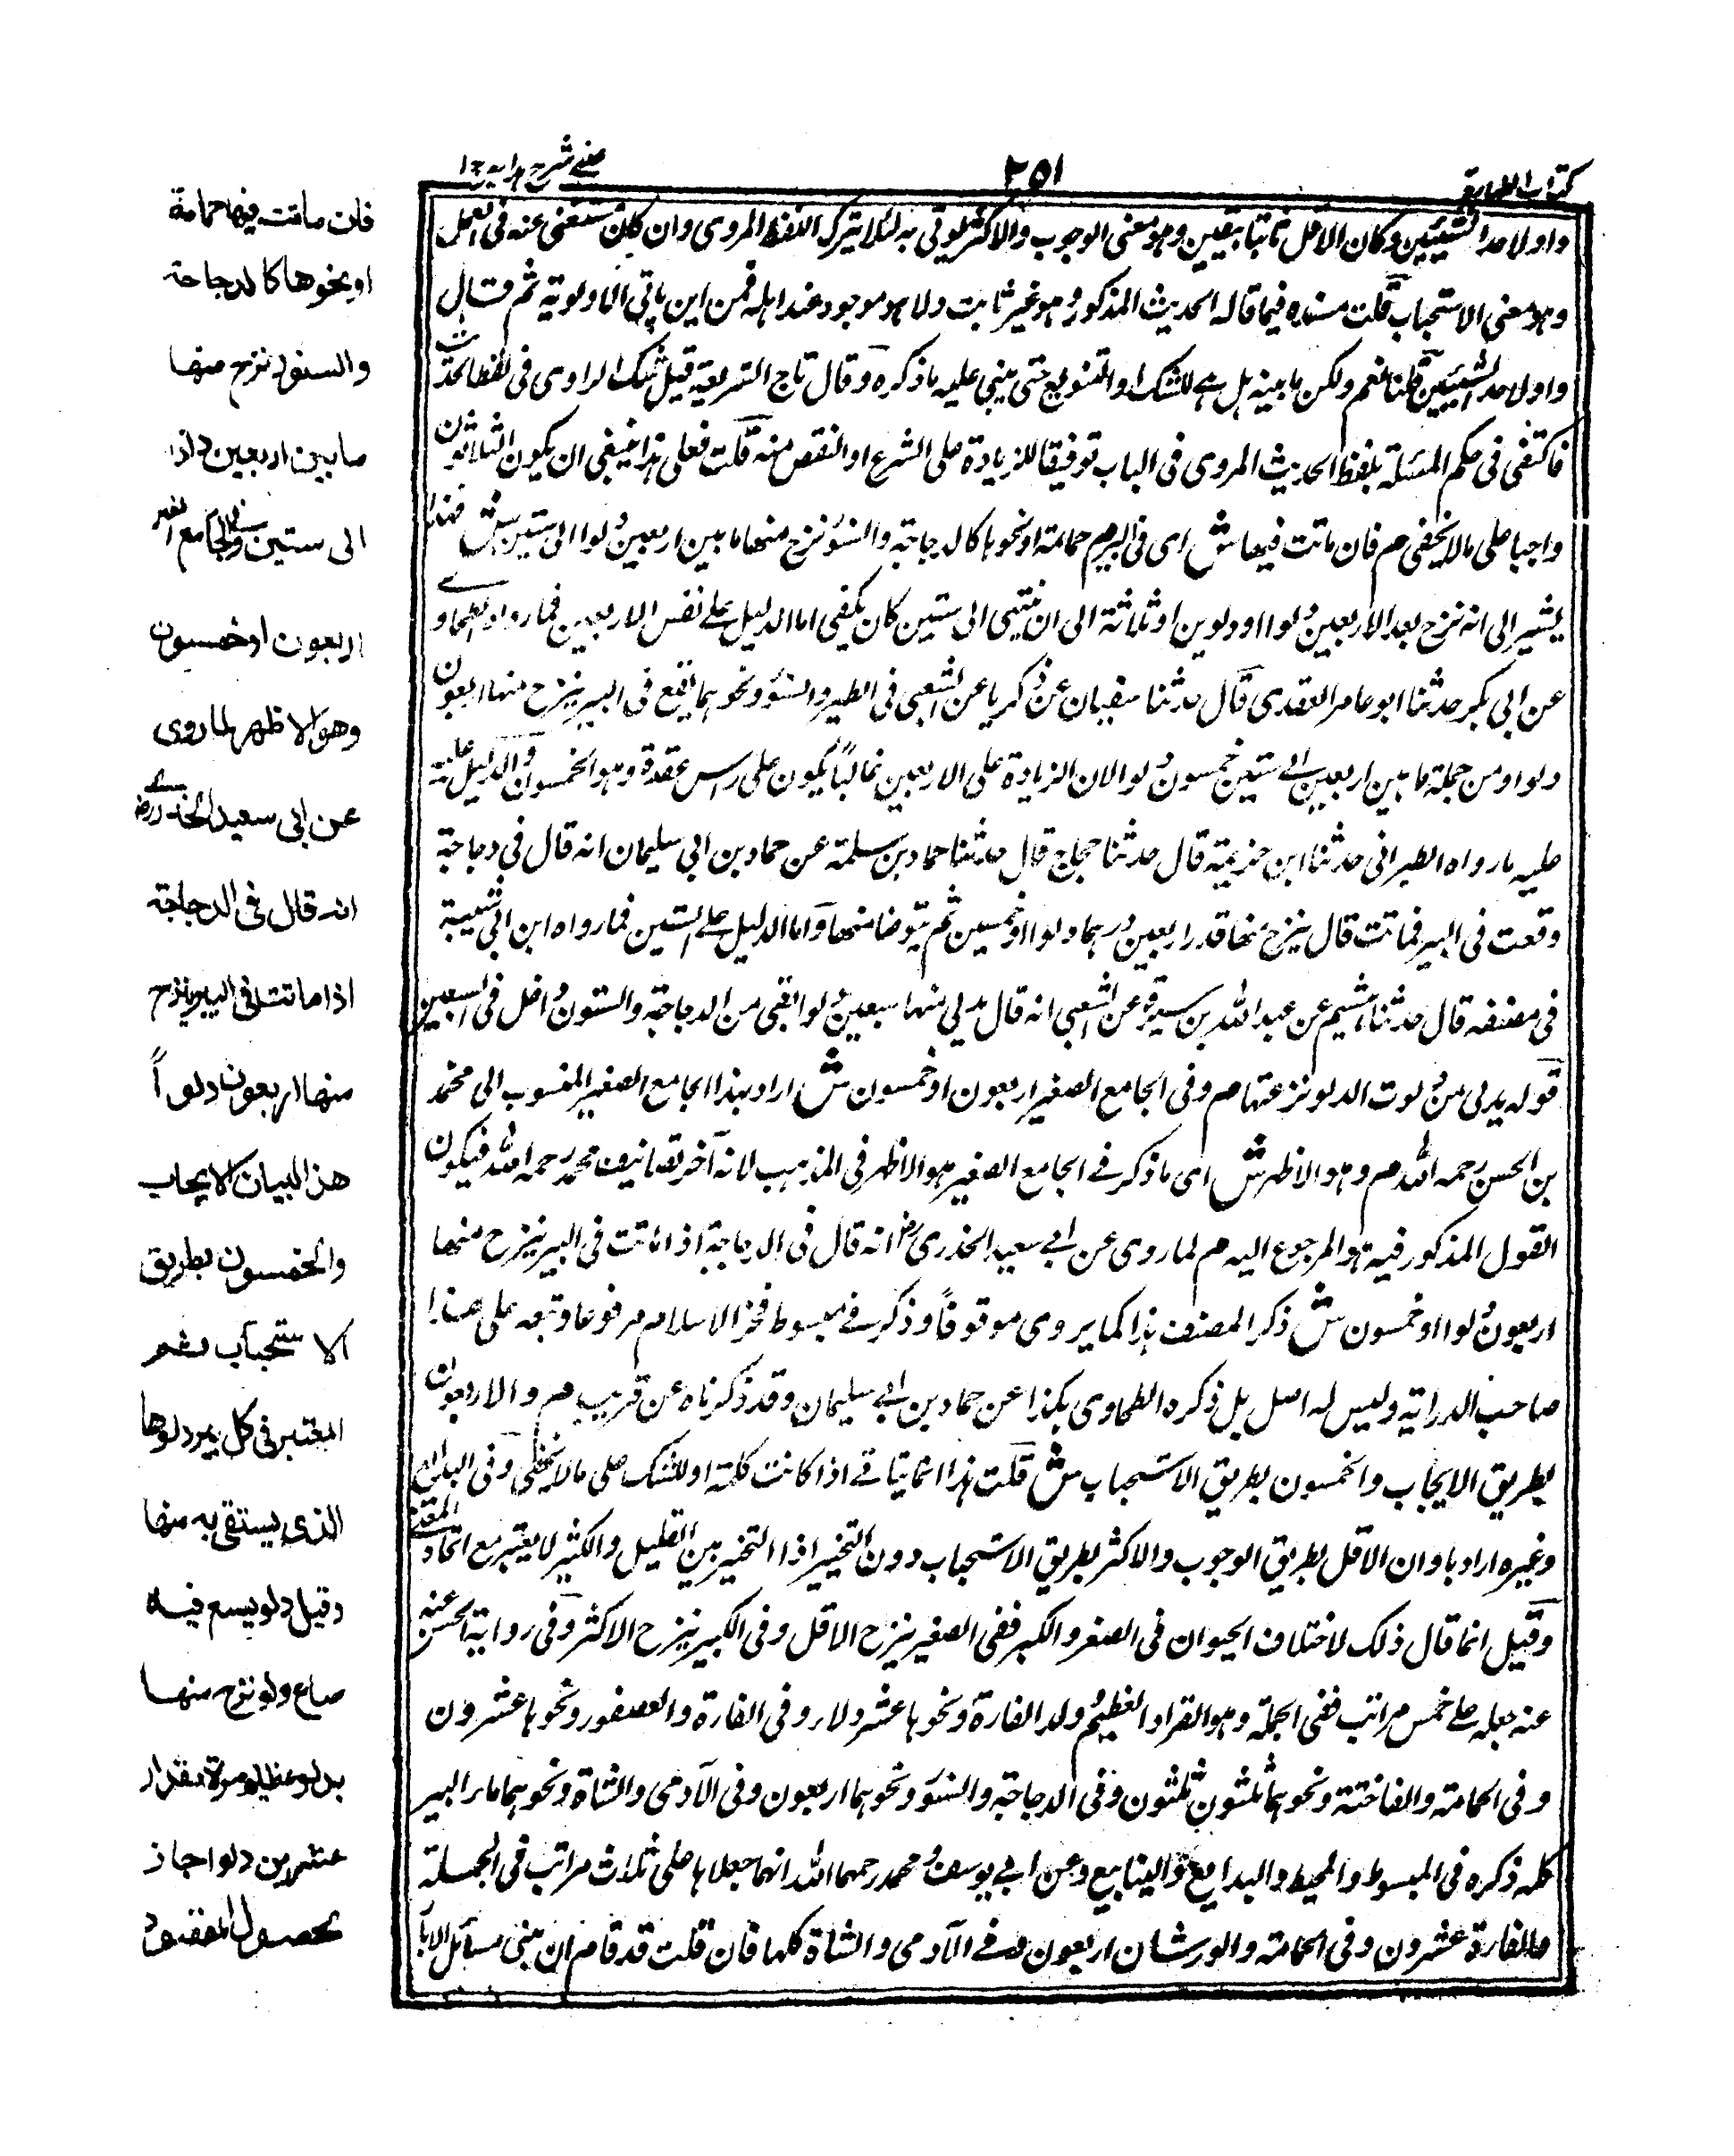 كتاب الطهارة
٢٥١
عيني شرح هداية ج ١
واو لاحد الشيئين وكان الاقل ثابتا بيقين وهو معنى الوجوب والاكثر يوتى به لئلا يترك اللفظ المروى وان كان مستغنى عنه فى العمل
وهو معنى الاستحباب قلت مسنده فيما قاله الحديث المذكور وهو غير ثابت ولا هو موجود عند اهله فمن اين ياتى الاولوية ثم قال
واو لاحد الشيئين قلنا نعم ولكن ما بينه هل هى للشك او التنويع حتى يبنى عليه ما ذكره وقال تاج الشريعة قيل شك الراوى فى لفظ الحديث
فاكتفى فى حكم المسئلة بلفظ الحديث المروى فى الباب توفيقا للزيادة على الشرع او النقص منه قلت فعلى هذا ينبغى ان يكون الثلاثون
واجبا على ما لا يخفى م فان ماتت فيها ش اى فى البير م حمامة او نحوها كالدجاجة والسنور نزح منها ما بين اربعين دلوا الى ستين ش هذا
يشير الى انه نزح بعد الاربعين دلوا او دلوين او ثلاثة الى ان ينتهى الى ستين كان يكفى اما الدليل على نفس الاربعين فما رواه الطحاوى
عن ابى بكر حدثنا ابو عامر العقدى قال حدثنا سفيان عن زكريا عن الشعبى فى الطير والسنور ونحوهما يقع فى البير ينزح منها اربعون
دلوا ومن جملة ما بين اربعين الى ستين خمسون دلوا لان الزيادة على الاربعين غالبا يكون على راس عقدة وهو الخمسون والدليل
عليه ما رواه الطبرانى حدثنا ابن خزيمة قال حدثنا حجاج قال حدثنا حماد بن سلمة عن حماد بن ابى سليمان انه قال فى دجاجة
وقعت فى البير فماتت قال ينزح منها قدر اربعين دلوا او خمسين ثم يتوضا منها واما الدليل على الستين فما رواه ابن ابى شيبة
فى مصنفه قال حدثنا هشيم عن عبد الله بن سبرة عن الشعبى انه قال يدلى منها سبعين دلوا يعنى من الدجاجة والستون داخل فى السبعين
قوله يدلى من دلوت الدلو نزعتها م وفى الجامع الصغير اربعون او خمسون ش اراد بهذا الجامع الصغير المنسوب الى محمد
بن الحسن رحمه الله م وهو الاظهر ش اى ما ذكر فى الجامع الصغير هو الاظهر فى المذهب لانه آخر تصانيف محمد رحمه الله فيكون
القول المذكور فيه هو المرجوع اليه م لما روى عن ابى سعيد الخدرى رض انه قال فى الدجاجة اذا ماتت فى البير ينزح منها
اربعون دلوا او خمسون ش ذكر المصنف هذا كما يروى موقوفا وذكر فى مبسوط فخر الاسلام مرفوعا وتبعه على هذا
صاحب الدراية وليس له اصل بل ذكره الطحاوى هكذا عن حماد بن ابى سليمان وقد ذكرناه عن قريب م والاربعون
بطريق الايجاب والخمسون بطريق الاستحباب ش قلت هذا انما يتاتى اذا كانت كلمة او للشك على ما لا يخفى وفى البدايع
وغيره ارادوا ان الاقل بطريق الوجوب والاكثر بطريق الاستحباب دون التخيير اذا التخيير بين القليل والكثير لا يعتبر مع اتحاد المعنى
وقيل انما قال ذلك لاختلاف الحيوان فى الصغر والكبر ففى الصغير ينزح الاقل وفى الكبير ينزح الاكثر وفى رواية الحسن عنه
عنه جعله على خمس مراتب ففى الحلمة وهو القراد العظيم وولد الفارة ونحوها عشر دلاء وفى الفارة والعصفور ونحوها عشرون
وفى الحمامة والفاختة ونحوهما ثلثون ثلثون وفى الدجاجة والسنور ونحوهما اربعون وفى الآدمى والشاة ونحوهما ماء البير
كله ذكره فى المبسوط والمحيط والبدايع والينابيع وعن ابى يوسف ومحمد رحمهما الله انهما جعلاها على ثلاث مراتب فى الجملة
فالفارة عشرون وفى الحمامة والورشان اربعون وفى الآدمى والشاة كلها فان قلت قد قام ان مبنى مسائل الابآ
فان ماتت فيها حمامة
او نحوها كالدجاجة
والسنور نزح منها
ما بين اربعين دلوا
الى ستين وفى الجامع الصغير
اربعون او خمسون
وهو الاظهر لما روى
عن ابى سعيد الخدرى رض
انه قال فى الدجاجة
اذا ماتت فى البير ينزح
منها اربعون دلوا
هذا لبيان الايجاب
والخمسون بطريق
الاستحباب ثم
المعتبر فى كل بير دلوها
الذى يستقى به منها
وقيل دلو يسع فيه
صاع ولو نزح منها
بدلو عظيم مرة مقدار
عشرين دلوا جاز
لحصول المقصود